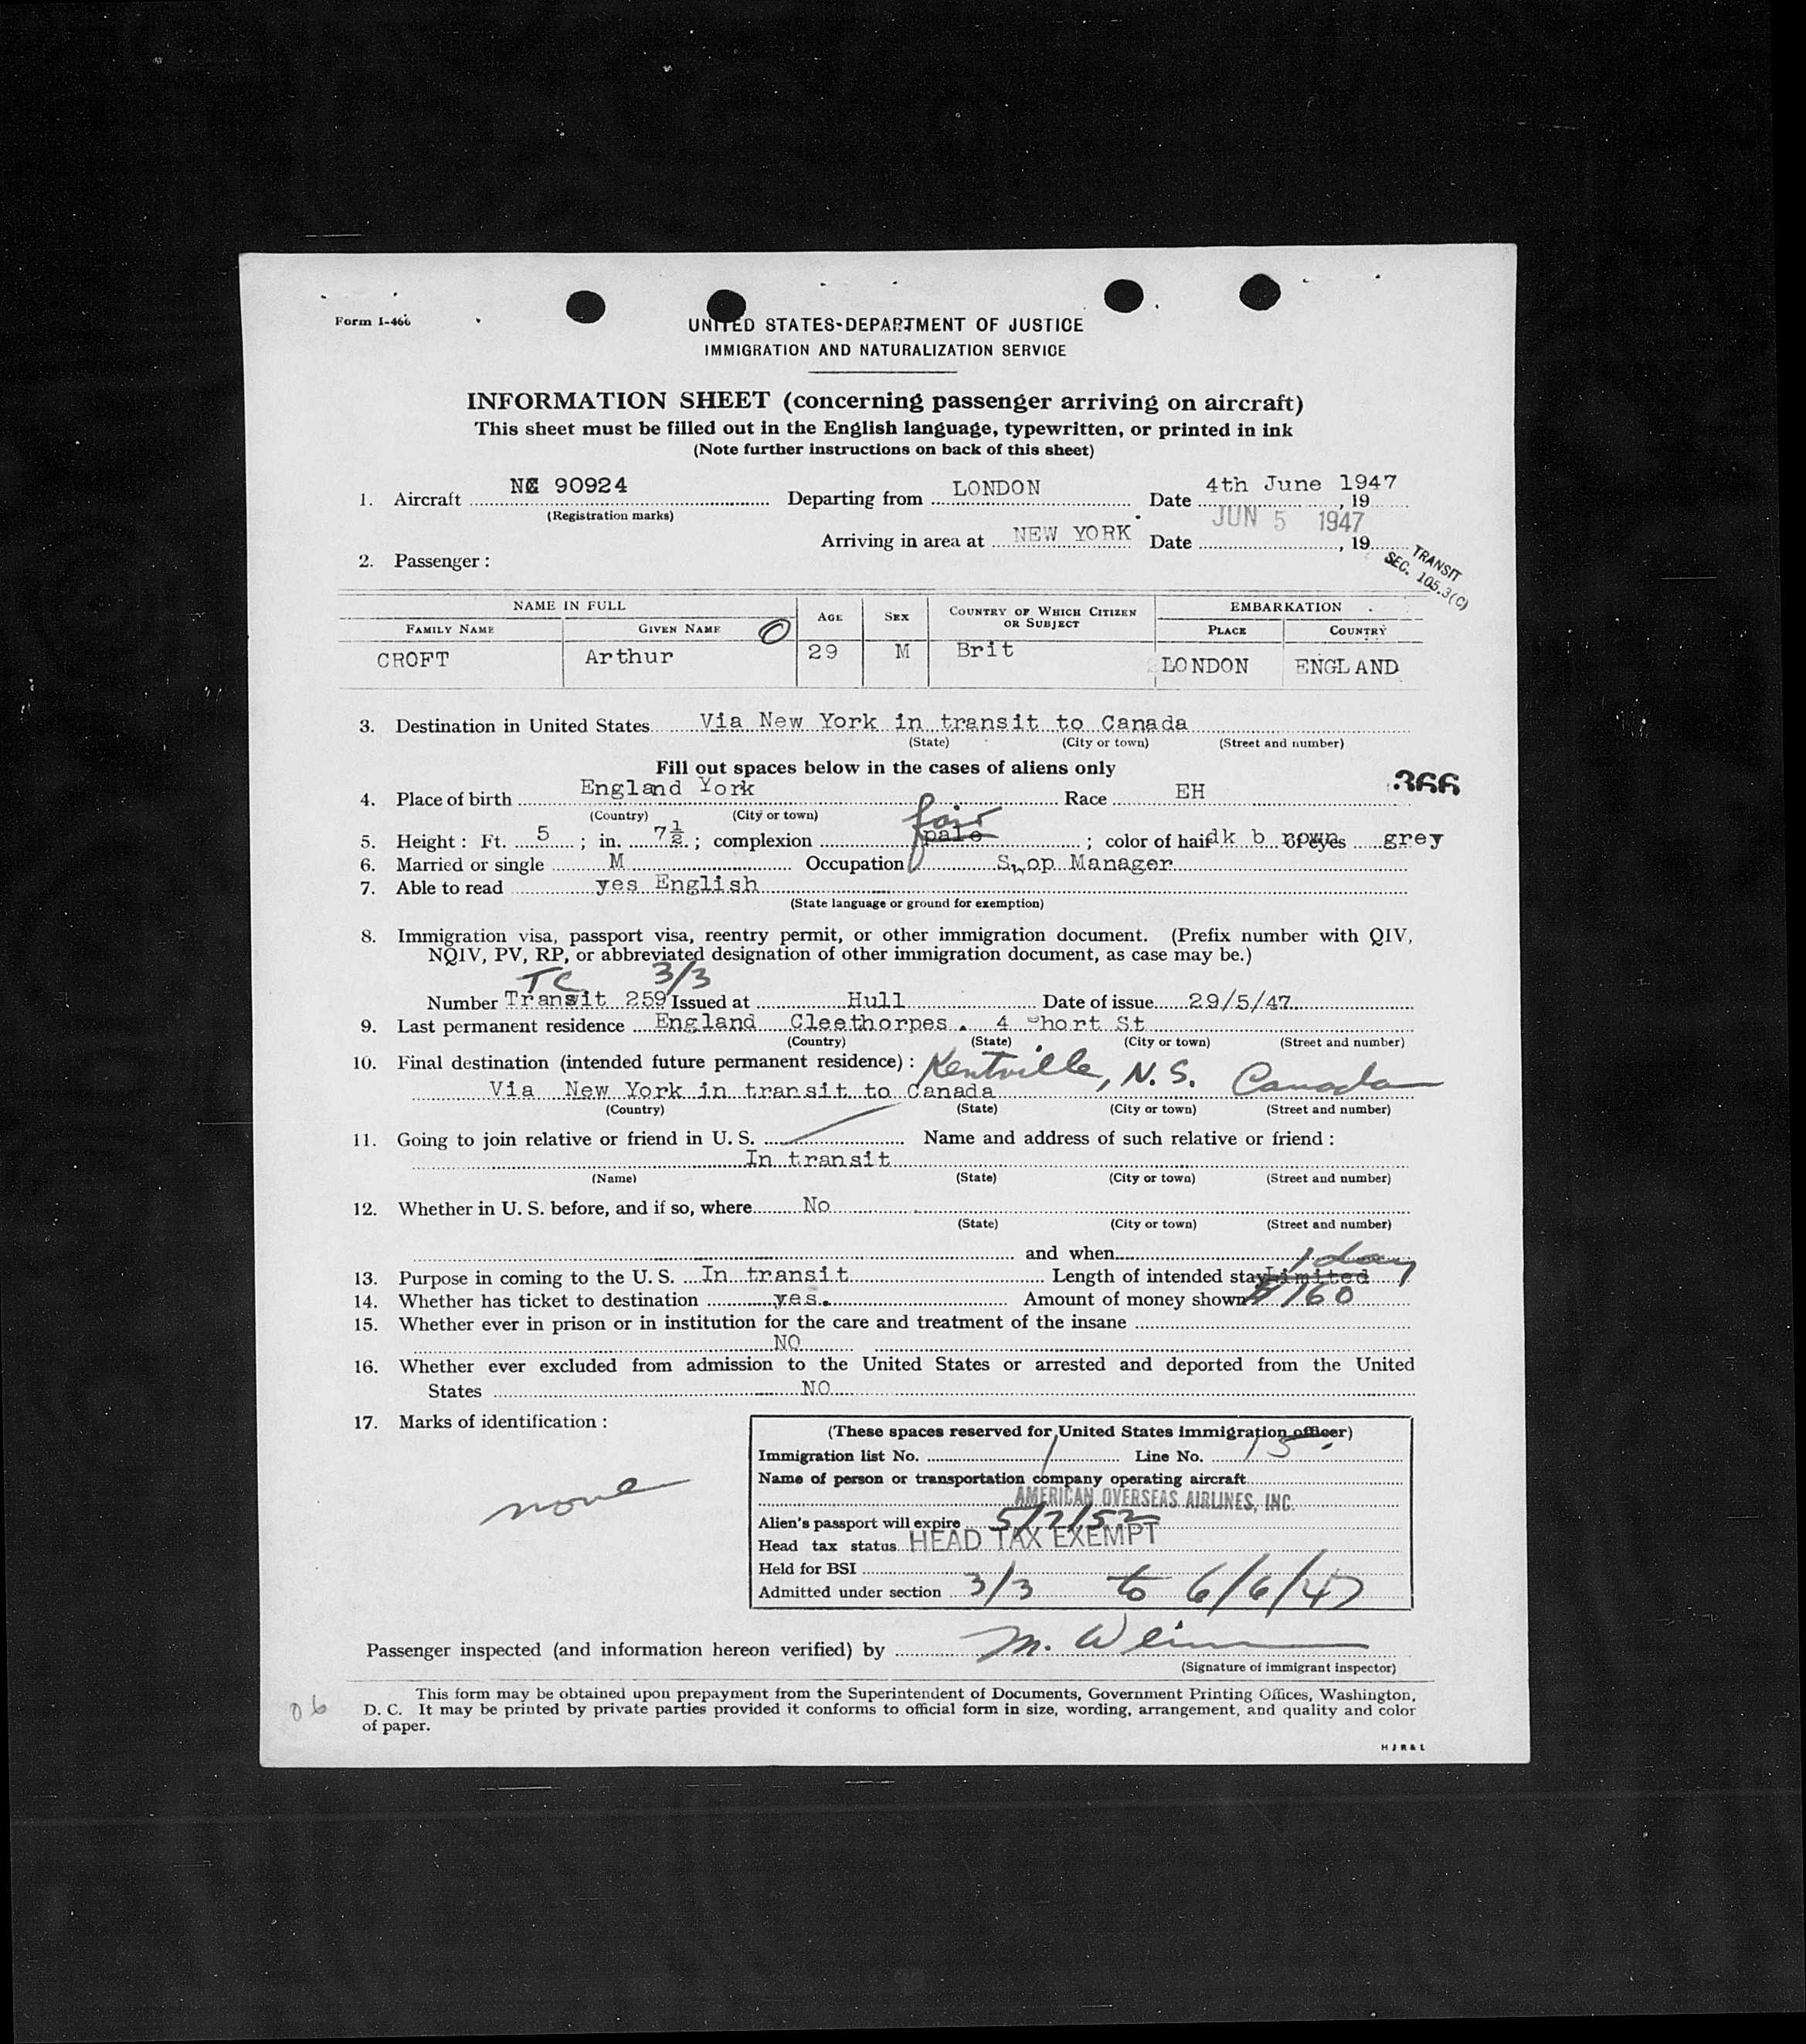 Form I-466
UNITED STATES-DEPARTMENT OF JUSTICE
IMMIGRATION AND NATURALIZATION SERVICE
INFORMATION SHEET (concerning passenger arriving on aircraft)
This sheet must be filled out in the English language, typewritten, or printed in ink
(Note further instructions on back of this sheet)
1. Aircraft NC 90924 Departing from LONDON Date 4th June 1947, 19
(Registration marks)
JUN 5 1947
Arriving in area at NEW YORK Date , 19
2. Passenger:
TRANSIT
SEC. 105.3(C)
NAME IN FULL AGE SEX COUNTRY OF WHICH CITIZEN OR SUBJECT EMBARKATION
FAMILY NAME GIVEN NAME PLACE COUNTRY
CROFT Arthur 29 M Brit LONDON ENGLAND
3. Destination in United States Via New York in transit to Canada
(State) (City or town) (Street and number)
Fill out spaces below in the cases of aliens only
366
4. Place of birth England York Race EH
(Country) (City or town)
fair
5. Height: Ft. 5 ; in. 7½ ; complexion pale ; color of hair dk b rown of eyes grey
6. Married or single M Occupation S op Manager
7. Able to read yes English
(State language or ground for exemption)
8. Immigration visa, passport visa, reentry permit, or other immigration document. (Prefix number with QIV,
NQIV, PV, RP, or abbreviated designation of other immigration document, as case may be.)
TC 3/3
Number Transit 259 Issued at Hull Date of issue 29/5/47
9. Last permanent residence England Cleethorpes. 4 Short St
(Country) (State) (City or town) (Street and number)
10. Final destination (intended future permanent residence): Kentville, N.S. Canada
Via New York in transit to Canada
(Country) (State) (City or town) (Street and number)
11. Going to join relative or friend in U. S. Name and address of such relative or friend:
In transit
(Name) (State) (City or town) (Street and number)
12. Whether in U. S. before, and if so, where No
(State) (City or town) (Street and number)
and when
1 day
13. Purpose in coming to the U. S. In transit Length of intended stay Limited
14. Whether has ticket to destination yes. Amount of money shown $160
15. Whether ever in prison or in institution for the care and treatment of the insane
NO
16. Whether ever excluded from admission to the United States or arrested and deported from the United
States NO
17. Marks of identification:
none
(These spaces reserved for United States immigration officer)
Immigration list No. 1 Line No. 15
Name of person or transportation company operating aircraft
AMERICAN OVERSEAS AIRLINES, INC.
Alien's passport will expire 5/7/52
Head tax status HEAD TAX EXEMPT
Held for BSI
Admitted under section 3/3 to 6/6/47
Passenger inspected (and information hereon verified) by M.
(Signature of immigrant inspector)
This form may be obtained upon prepayment from the Superintendent of Documents, Government Printing Offices, Washington,
D. C. It may be printed by private parties provided it conforms to official form in size, wording, arrangement, and quality and color
of paper.
06
HJR&L